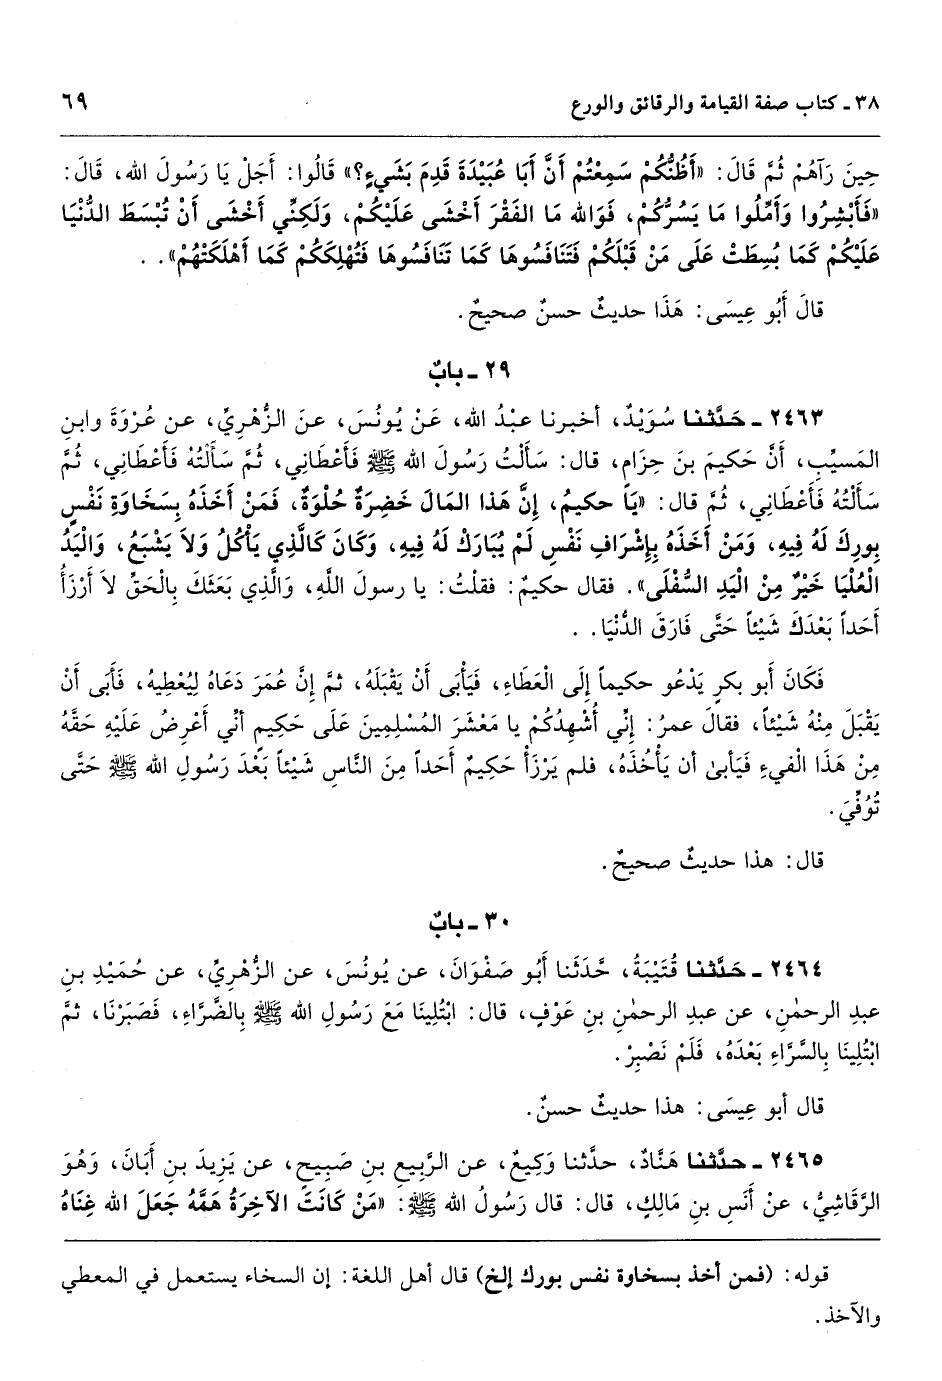 ٣٨ ـ كتاب صفة القيامة والرقائق والورع ٦٩
حِينَ رَآهُمْ ثُمَّ قَالَ: «أَظُنُّكُمْ سَمِعْتُمْ أَنَّ أَبَا عُبَيْدَةَ قَدِمَ بَشَيءٍ؟» قَالُوا: أَجَلْ يَا رَسُولَ الله، قَالَ:
«فَأَبْشِرُوا وَأَمِّلُوا مَا يَسُرُّكُمْ، فَوَالله مَا الفَقْرَ أَخْشَى عَلَيْكُمْ، وَلَكِنِّي أَخْشَى أَنْ تُبْسَطَ الدُّنْيَا
عَلَيْكُمْ كَمَا بُسِطَتْ عَلَى مَنْ قَبْلَكُمْ فَتَنَافَسُوهَا كَمَا تَنَافَسُوهَا فَتُهْلِكَكُمْ كَمَا أَهْلَكَتْهُمْ». .
قالَ أَبُو عِيسَى: هَذَا حديثٌ حسنٌ صحيحٌ.
٢٩ ـ بابٌ
٢٤٦٣ ـ حَدَّثنا سُوَيْدٌ، أخبرنا عبْدُ الله، عَنْ يُونُسَ، عنَ الزُّهْرِيِّ، عن عُرْوَةَ وابنِ
المَسيِّبِ، أَنَّ حَكيمَ بنَ حِزَام، قال: سَأَلْتُ رَسُولَ الله ﷺ فَأَعْطَانِي، ثُمَّ سَأَلتُهُ فَأَعْطَانِي، ثُمَّ
سَأَلْتُهُ فَأَعْطَانِي، ثُمَّ قال: «يَا حكيمُ، إِنَّ هَذا المَالَ خَضِرَةٌ حُلْوَةٌ، فَمَنْ أَخَذَهُ بِسَخَاوَةِ نَفْسٍ
بورِكَ لَهُ فِيهِ، وَمَنْ أَخَذَهُ بِإِشْرَافِ نَفْسٍ لَمْ يُبَارَكْ لَهُ فِيهِ، وَكَانَ كَالَّذِي يَأْكُلُ وَلاَ يَشْبَعُ، وَالْيَدُ
الْعُلْيَا خَيْرٌ مِنْ الْيَدِ السُّفْلَى». فقال حكيمٌ: فقلْتُ: يا رسولَ اللَّهِ، وَالَّذِي بَعَثَكَ بِالْحَقِّ لاَ أَرْزَأُ
أَحَداً بَعْدَكَ شَيْئاً حَتَّى فَارَقَ الدُّنْيَا. .
فَكَانَ أبو بكرٍ يَدْعُو حكيماً إِلَى الْعَطَاءِ، فَيَأْبَى أَنْ يَقْبَلَهُ، ثمَّ إِنَّ عُمَرَ دَعَاهُ لِيُعْطِيهُ، فَأَبَى أَنْ
يَقْبَلَ مِنْهُ شَيْئاً، فقالَ عمرُ: إِنِّي أُشْهِدُكُمْ يا مَعْشَرَ المُسْلِمِينَ عَلَى حَكِيمٍ أنِّي أَعْرِضُ عَلَيْهِ حَقَّهُ
مِنْ هَذَا الْفيءِ فَيَأبىٰ أن يَأْخُذَهُ، فلم يَرْزَأْ حَكِيمٌ أَحَداً مِنَ النَّاسِ شَيْئاً بَعْدَ رَسُولِ الله ﷺ حَتَّى
تُوُفِّيَ.
قال: هذا حديثٌ صحيحٌ.
٣٠ ـ بابٌ
٢٤٦٤ ـ حَدَّثنا قُتَيْبَةُ، حَّدَثَنا أَبُو صَفْوَانَ، عن يُونُسَ، عن الزُّهْرِيِّ، عن حُمَيْدِ بنِ
عبدِ الرحمٰنِ، عن عبدِ الرحمٰنِ بنِ عَوْفٍ، قال: ابْتُلِينَا مَعَ رَسُولِ الله ﷺ بِالضَّرَّاءِ، فَصَبَرْنَا، ثمَّ
ابْتُلِينَا بِالسَّرَّاءِ بَعْدَهُ، فَلَمْ نَصْبِرْ.
قال أبو عِيسَى: هذا حديثٌ حسنٌ.
٢٤٦٥ ـ حدَّثنا هَنَّادٌ، حدَّثنا وَكِيعٌ، عن الرَّبِيعِ بنِ صَبِيحٍ، عن يَزِيدَ بنِ أَبَانَ، وَهُوَ
الرَّقَاشِيُّ، عنْ أَنَسِ بنِ مَالِكٍ، قال: قال رَسُولُ الله ﷺ: «مَنْ كَانَتَ الآخِرَةُ هَمَّهُ جَعَلَ الله غِنَاهُ
قوله: (فمن أخذ بسخاوة نفس بورك إلخ) قال أهل اللغة: إن السخاء يستعمل في المعطي
والآخذ.